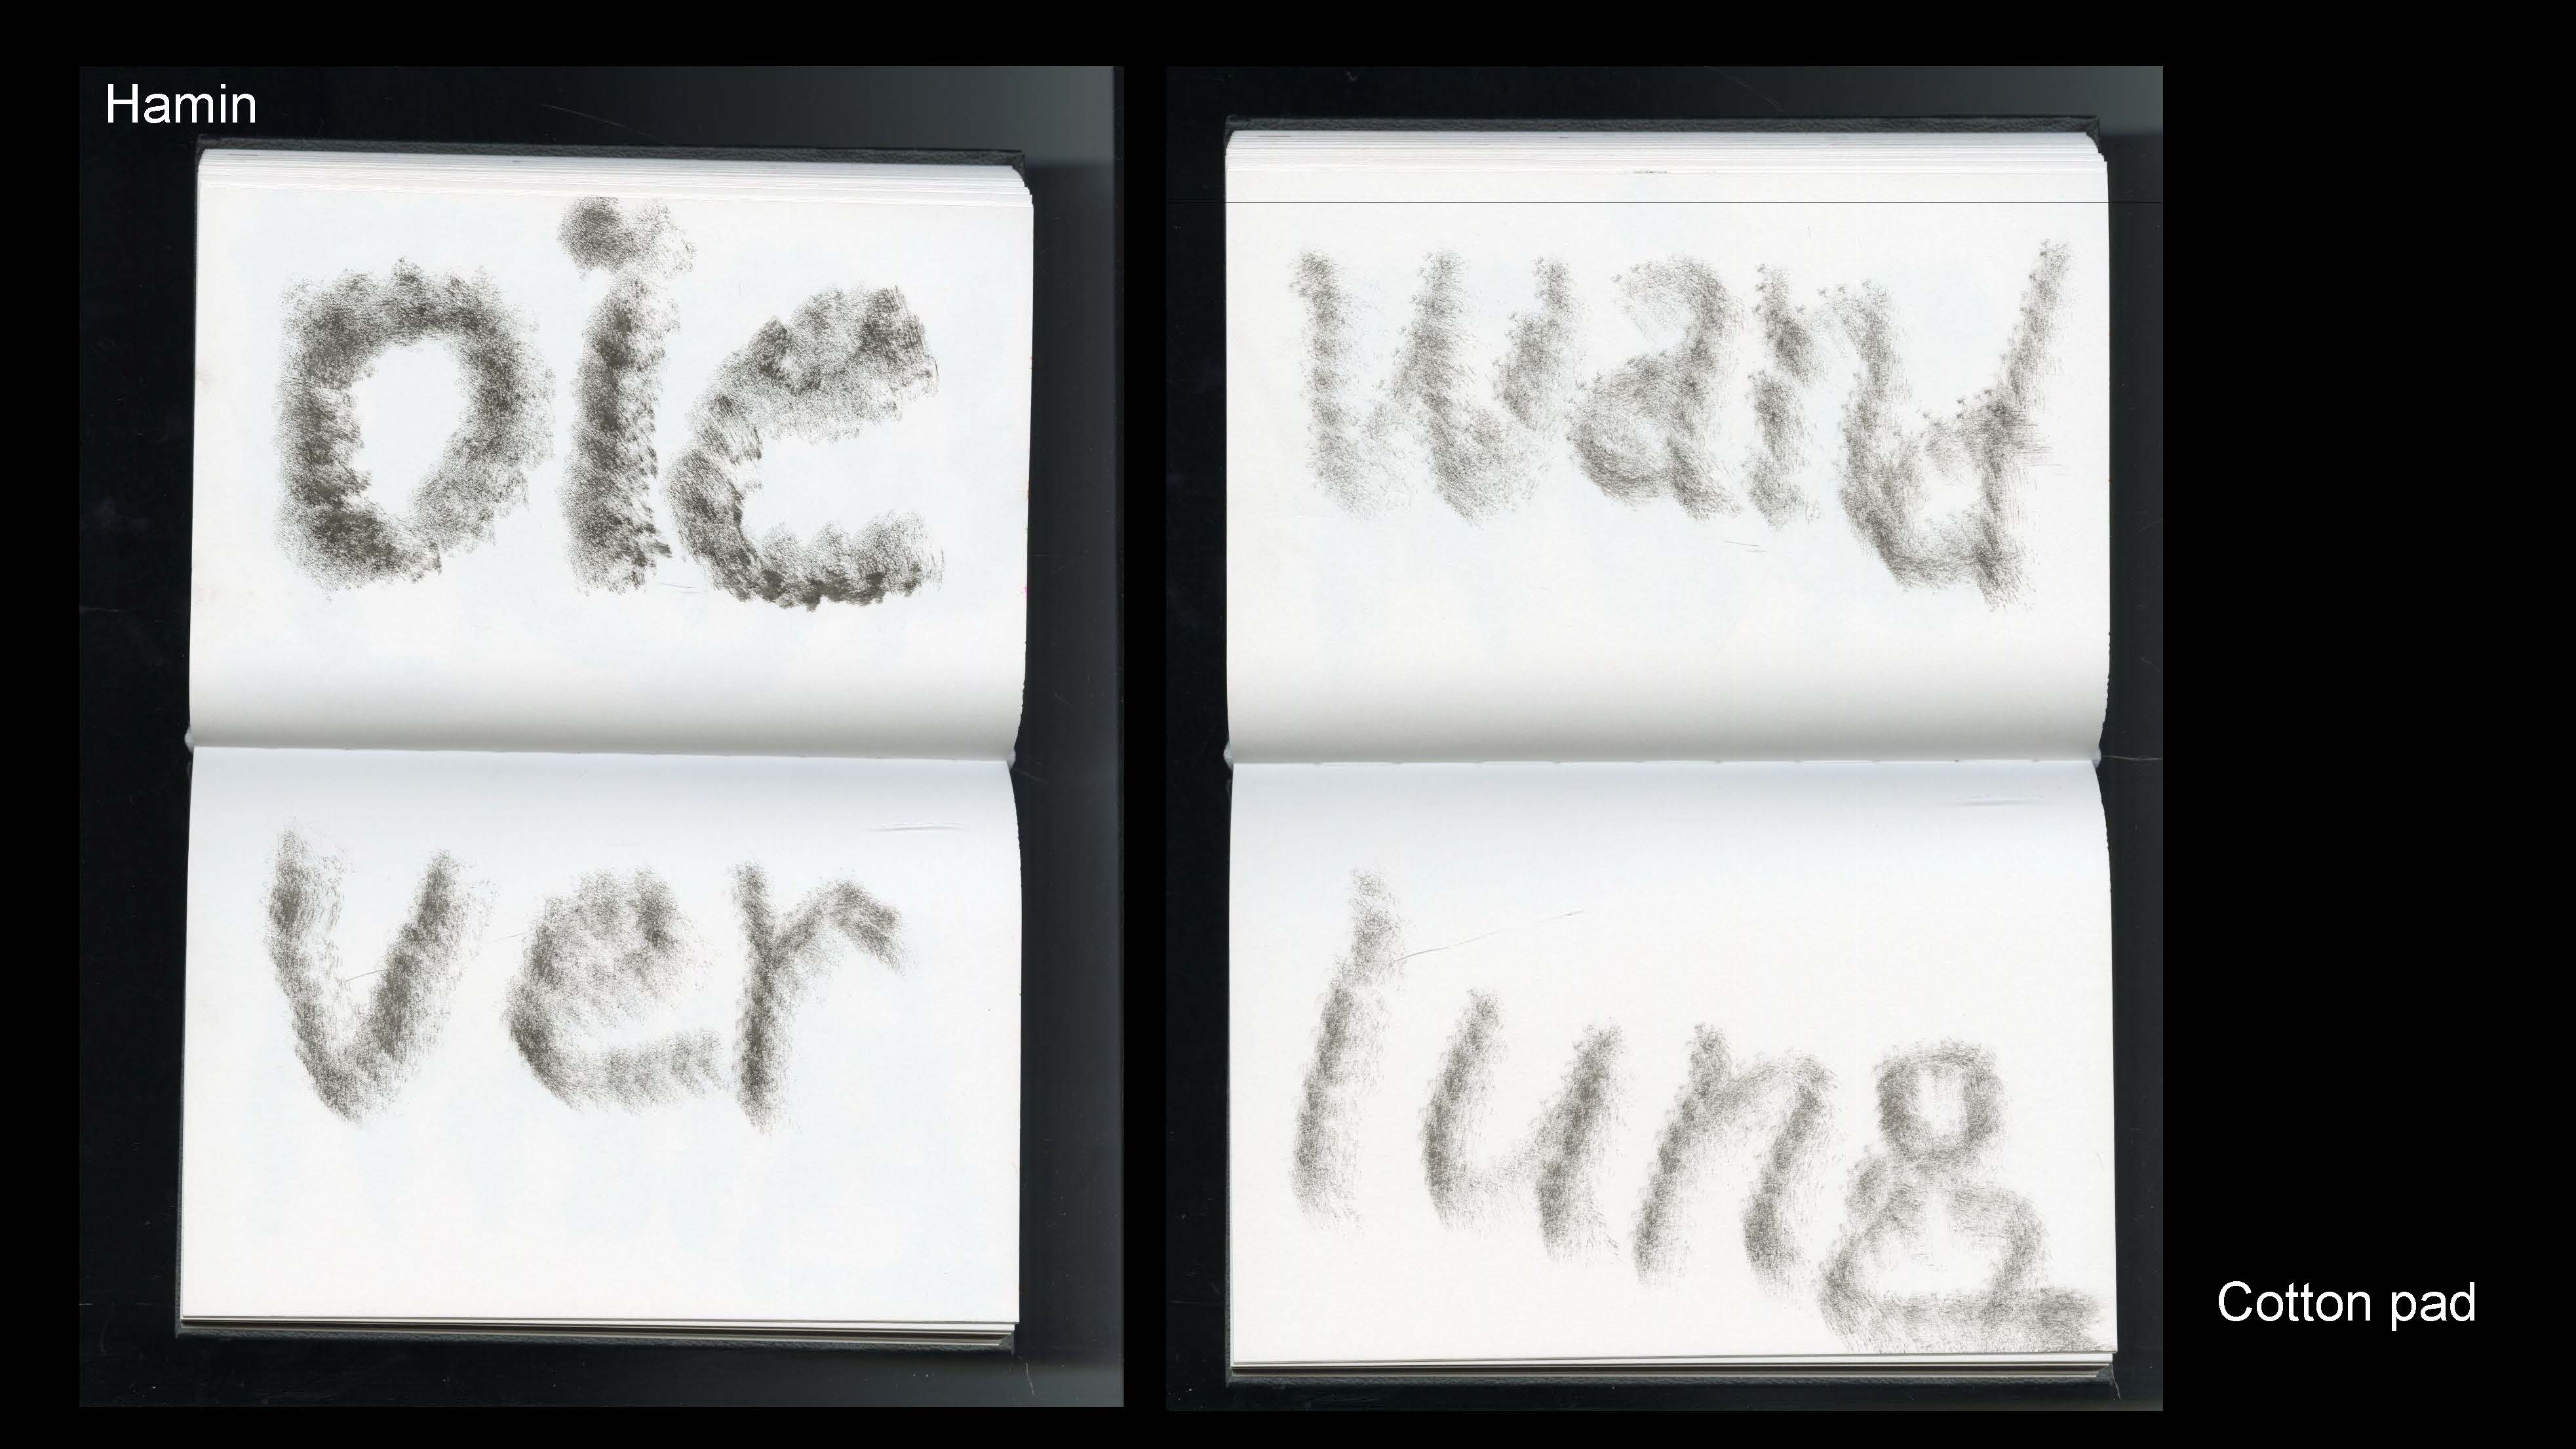 Hamin
Die
ver
wand
lung
Cotton pad